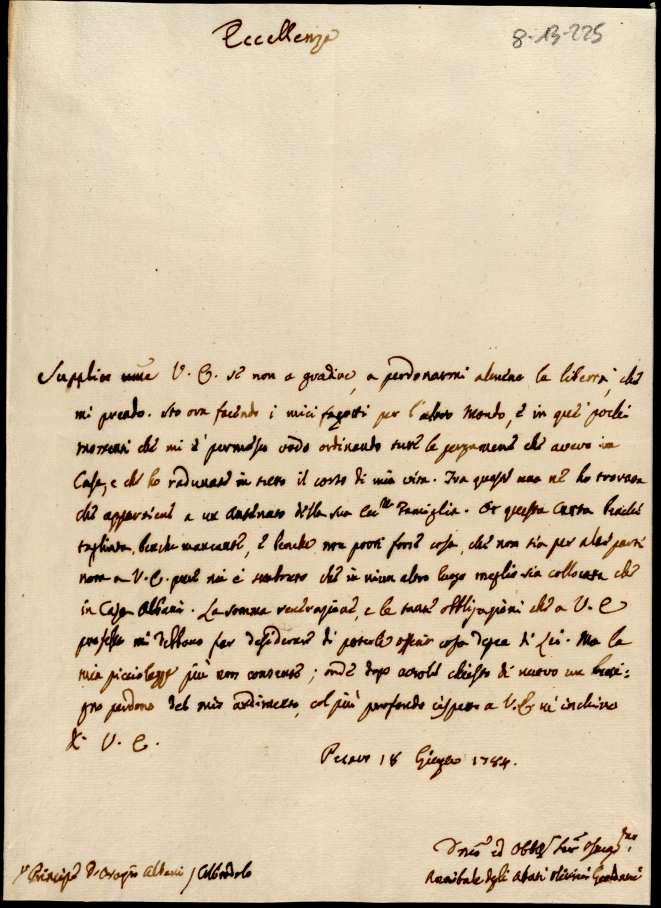 Eccellenza
8-13-225
Supplico V. E. se non a gradire, a perdonarmi almeno la libertà, che
mi prendo. Sto ora facendo i miei fagotti per l'altro Mondo, e in que' pochi
momenti che mi è permesso vado ordinando tutte le pergamene che avevo in
Casa, e che ho radunate in tutto il corso di mia vita. Tra queste una ne ho trovata
che appartiene a un Antenato della sua Famiglia. Or questa Carta benchè
tagliata, benche mancante, e benche non porti forse cosa, che non sia per altre parti
nota a V. E. pure mi è sembrato che in niun altro luogo meglio sia collocata che
in Casa Albani. La somma venerazione, e le tante obbligazioni che a V. E
professo mi debbono far desiderare di poterle offerir cosa degna di Lei. Ma la
mia picciolezza più non consente; onde dopo averle chiesto di nuovo un beni:
gno perdono del mio ardimento, col più profondo rispetto a V. E. m'inchino
Di V. E.
Pesaro 18 Giugno 1784.
Principe D. Orazio Albani
Annibale degli Abati Olivieri Giordani